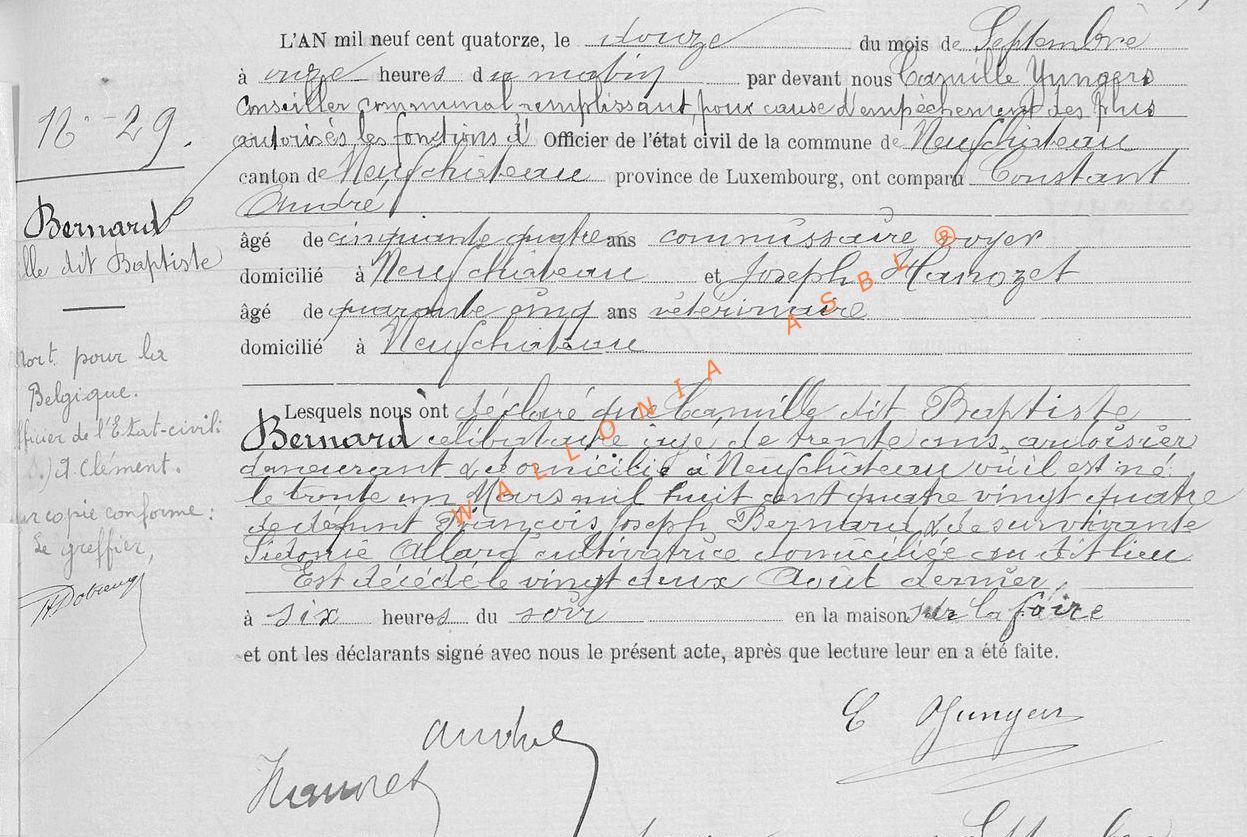 L'AN mil neuf cent quatorze, le douze du mois de Septembre
à onze heures du matin par devant nous Camille Yungers
Conseiller communal remplissant, pour cause d'empêchement des plus
autorisés les fonctions d' Officier de l'état civil de la commune de Neufchâteau
canton de Neufchâteau province de Luxembourg, ont comparu Constant
André
âgé de cinquante quatre ans commissaire voyer
domicilié à Neufchâteau et Joseph Hanozet
âgé de quarante cinq ans vétérinaire
domicilié à Neufchâteau
Lesquels nous ont déclaré que Camille dit Baptiste
Bernard célibataire âgé de trente ans, ardoisier
demeurant & domicilié à Neufchâteau où il est né
le trente un Mars mil huit cent quatre vingt quatre
de défunt François Joseph Bernard & de survivante
Sidonie Allard cultivatrice domiciliée au dit lieu
Est décédé le vingt deux Août dernier,
à six heures du soir en la maison sur la foire
et ont les déclarants signé avec nous le présent acte, après que lecture leur en a été faite.
29.
Bernard
lle dit Baptiste
Mort pour la
Belgique.
fficier de l'Etat-civil:
.) A Clément.
ur copie conforme:
Le greffier,
C Yungers
André
Hanozet
WALLONIA ASBL ®